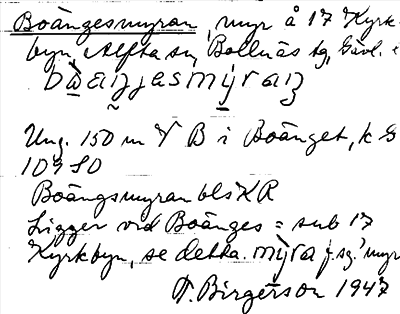 Boängesmyran, myr å 17 Kyrk-
byn, Alfta sn, Bollnäs tg, Gävl.
Ung. 150 m V B i Boänget, k G
109 SO
Boängsmyran bls KR
Ligger vid Boänges = sub 17
Kyrkbyn, se detta. mỳra f. sg. 'myr
T. Birgerson 1947